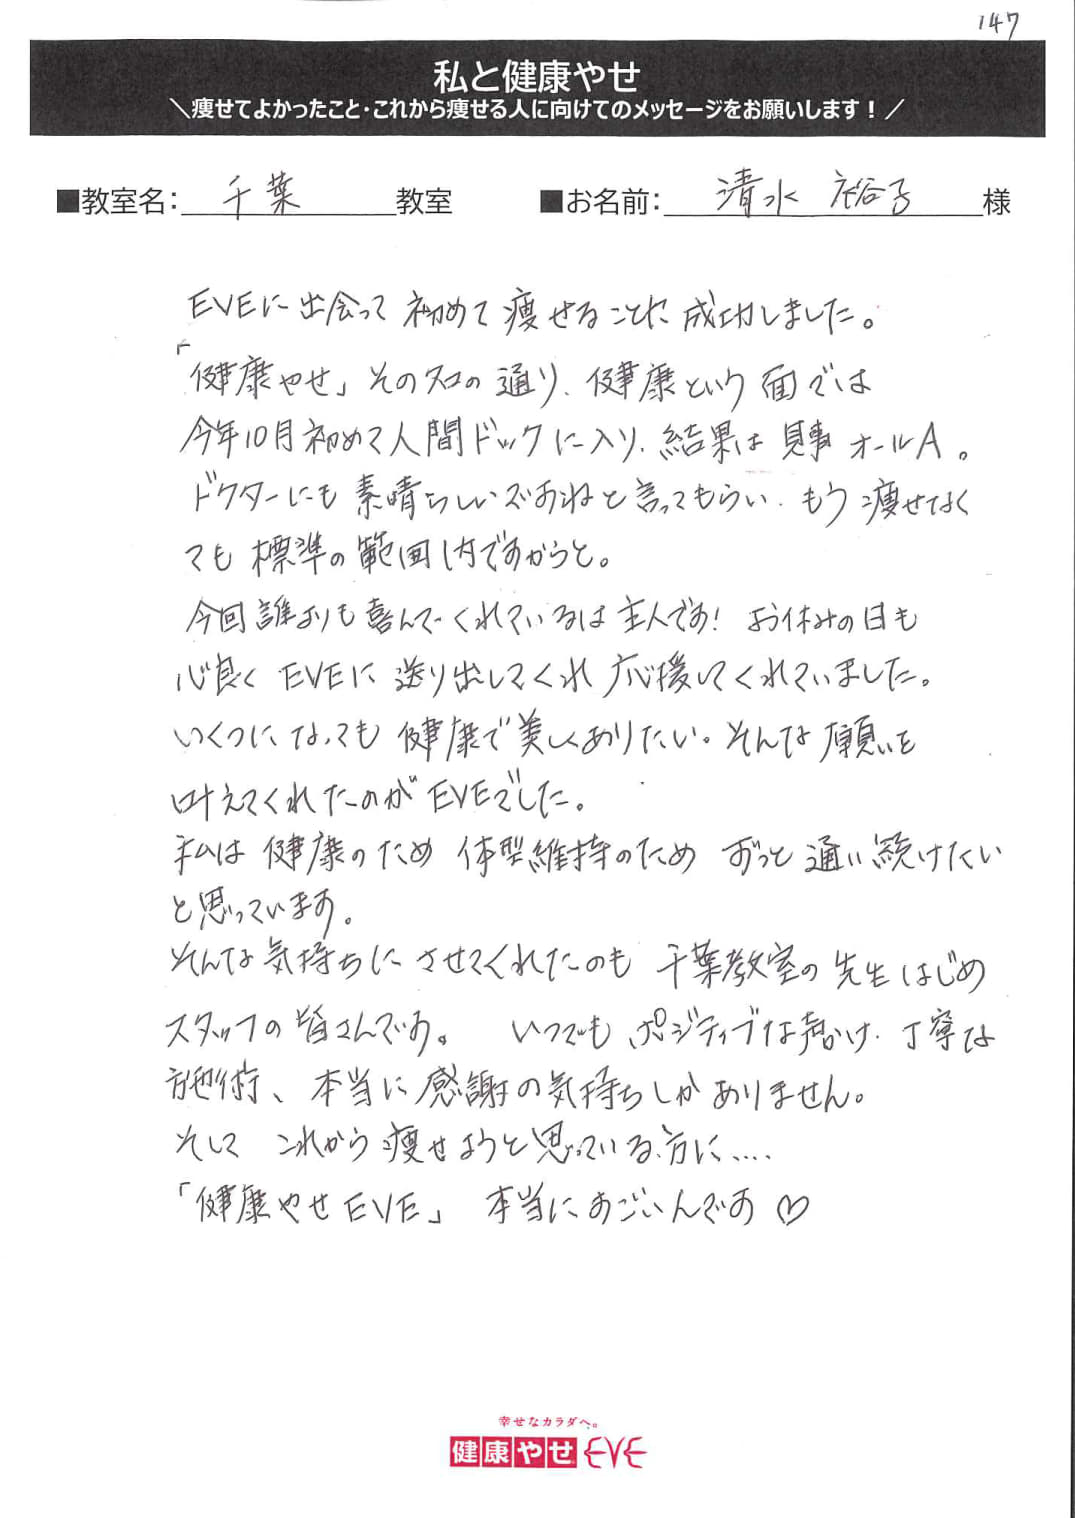 147
私と健康やせ
＼痩せてよかったこと・これから痩せる人に向けてのメッセージをお願いします！／
■教室名：千葉教室 ■お名前：清水 裕子様
EVEに出会って初めて痩せることに成功しました。
「健康やせ」その名の通り、健康という面では
今年10月初めて人間ドックに入り、結果は見事オールA。
ドクターにも素晴らしいですねと言ってもらい、もう痩せなく
ても標準の範囲内ですからと。
今回誰よりも喜んでくれているは主人です！お休みの日も
心良くEVEに送り出してくれ応援してくれていました。
いくつになっても健康で美しくありたい。そんな願いを
叶えてくれたのがEVEでした。
私は健康のため体型維持のためずっと通い続けたい
と思っています。
そんな気持ちにさせてくれたのも千葉教室の先生はじめ
スタッフの皆さんです。いつでもポジティブな声かけ、丁寧な
施術、本当に感謝の気持ちしかありません。
そしてこれから痩せようと思っている方に‥‥
「健康やせEVE」本当にすごいんです♡
幸せなカラダへ。
健康やせEVE